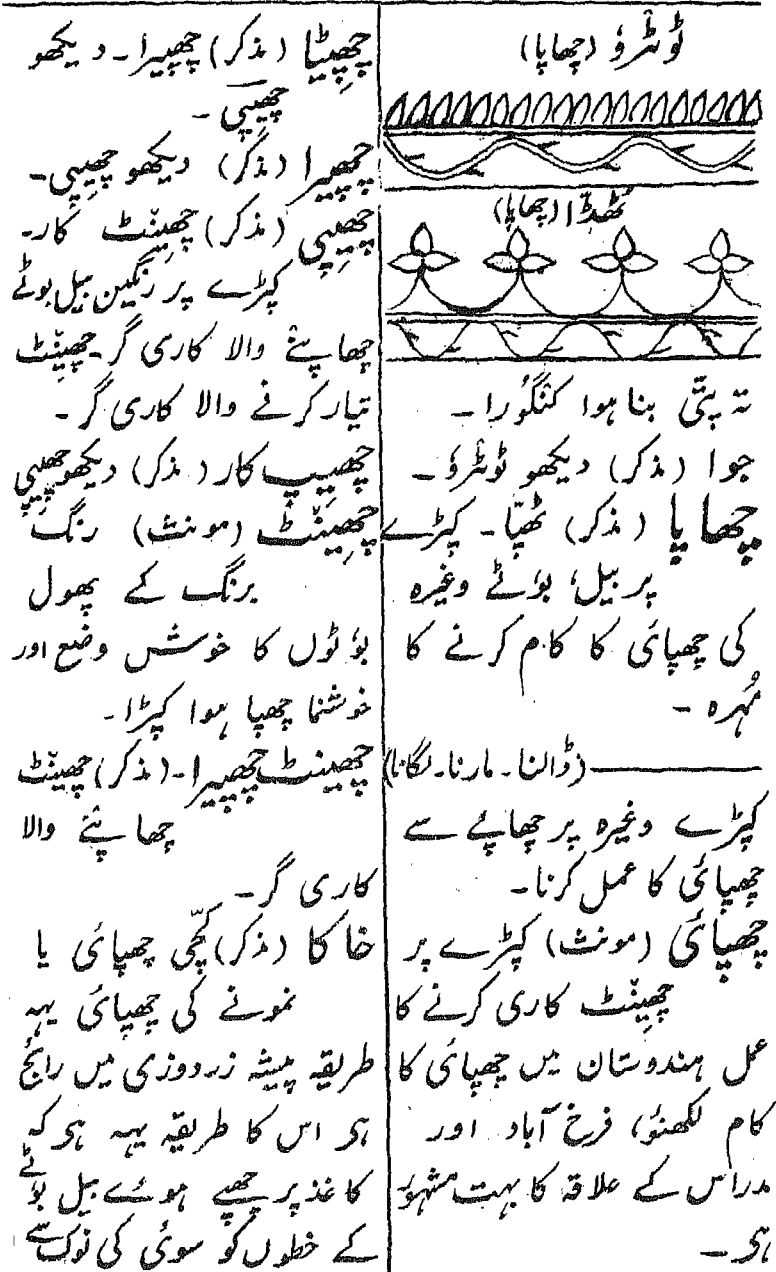 ٹونٹرؤ (چھاپا)
ٹھڈّا (چھاپا)
تہ پتّی بنا ہوا کنگُورا۔
جوا (مذکر) دیکھو ٹونٹرؤ۔
چھاپا (مذکر) ٹھپّا۔ کپڑے
پر بیل، بوٗٹے وغیرہ
کی چھپائی کا کام کرنے کا
مُہرہ۔
——— (ڈالنا۔ مارنا۔ لگانا)
کپڑے وغیرہ پر چھاپے سے
چھپائی کا عمل کرنا۔
چھپائی (مونث) کپڑے پر
چھینٹ کاری کرنے کا
عمل ہندوستان میں چھپائی کا
کام لکھنؤ، فرخ آباد اور
مدراس کے علاقہ کا بہت مشہوٗر
ہی۔
چھپیٹا (مذکر) چھپیرا۔ دیکھو
چھیپی۔
چھپیرا (مذکر) دیکھو چھیپی۔
چھیپی (مذکر) چھینٹ کار۔
کپڑے پر رنگین بیل بوٹے
چھاپنے والا کاری گر۔ چھینٹ
تیار کرنے والا کاری گر۔
چھیپ کار (مذکر) دیکھو چھیپی
چھینٹ (مونث) رنگ
برنگ کے پھول
بوٗٹوں کا خوش وضع اور
خوشنما چھپا ہوا کپڑا۔
چھینٹ چھپیرا۔ (مذکر) چھینٹ
چھاپنے والا
کاری گر۔
خاکا (مذکر) کچّی چھپائی یا
نمونے کی چھپائی یہہ
طریقہ پیشہ زردوزی میں رائج
ہی اس کا طریقہ یہہ ہی کہ
کاغذ پر چھپے ہوئے بیل بوٗٹے
کے خطوں کو سوئی کی نوک سے